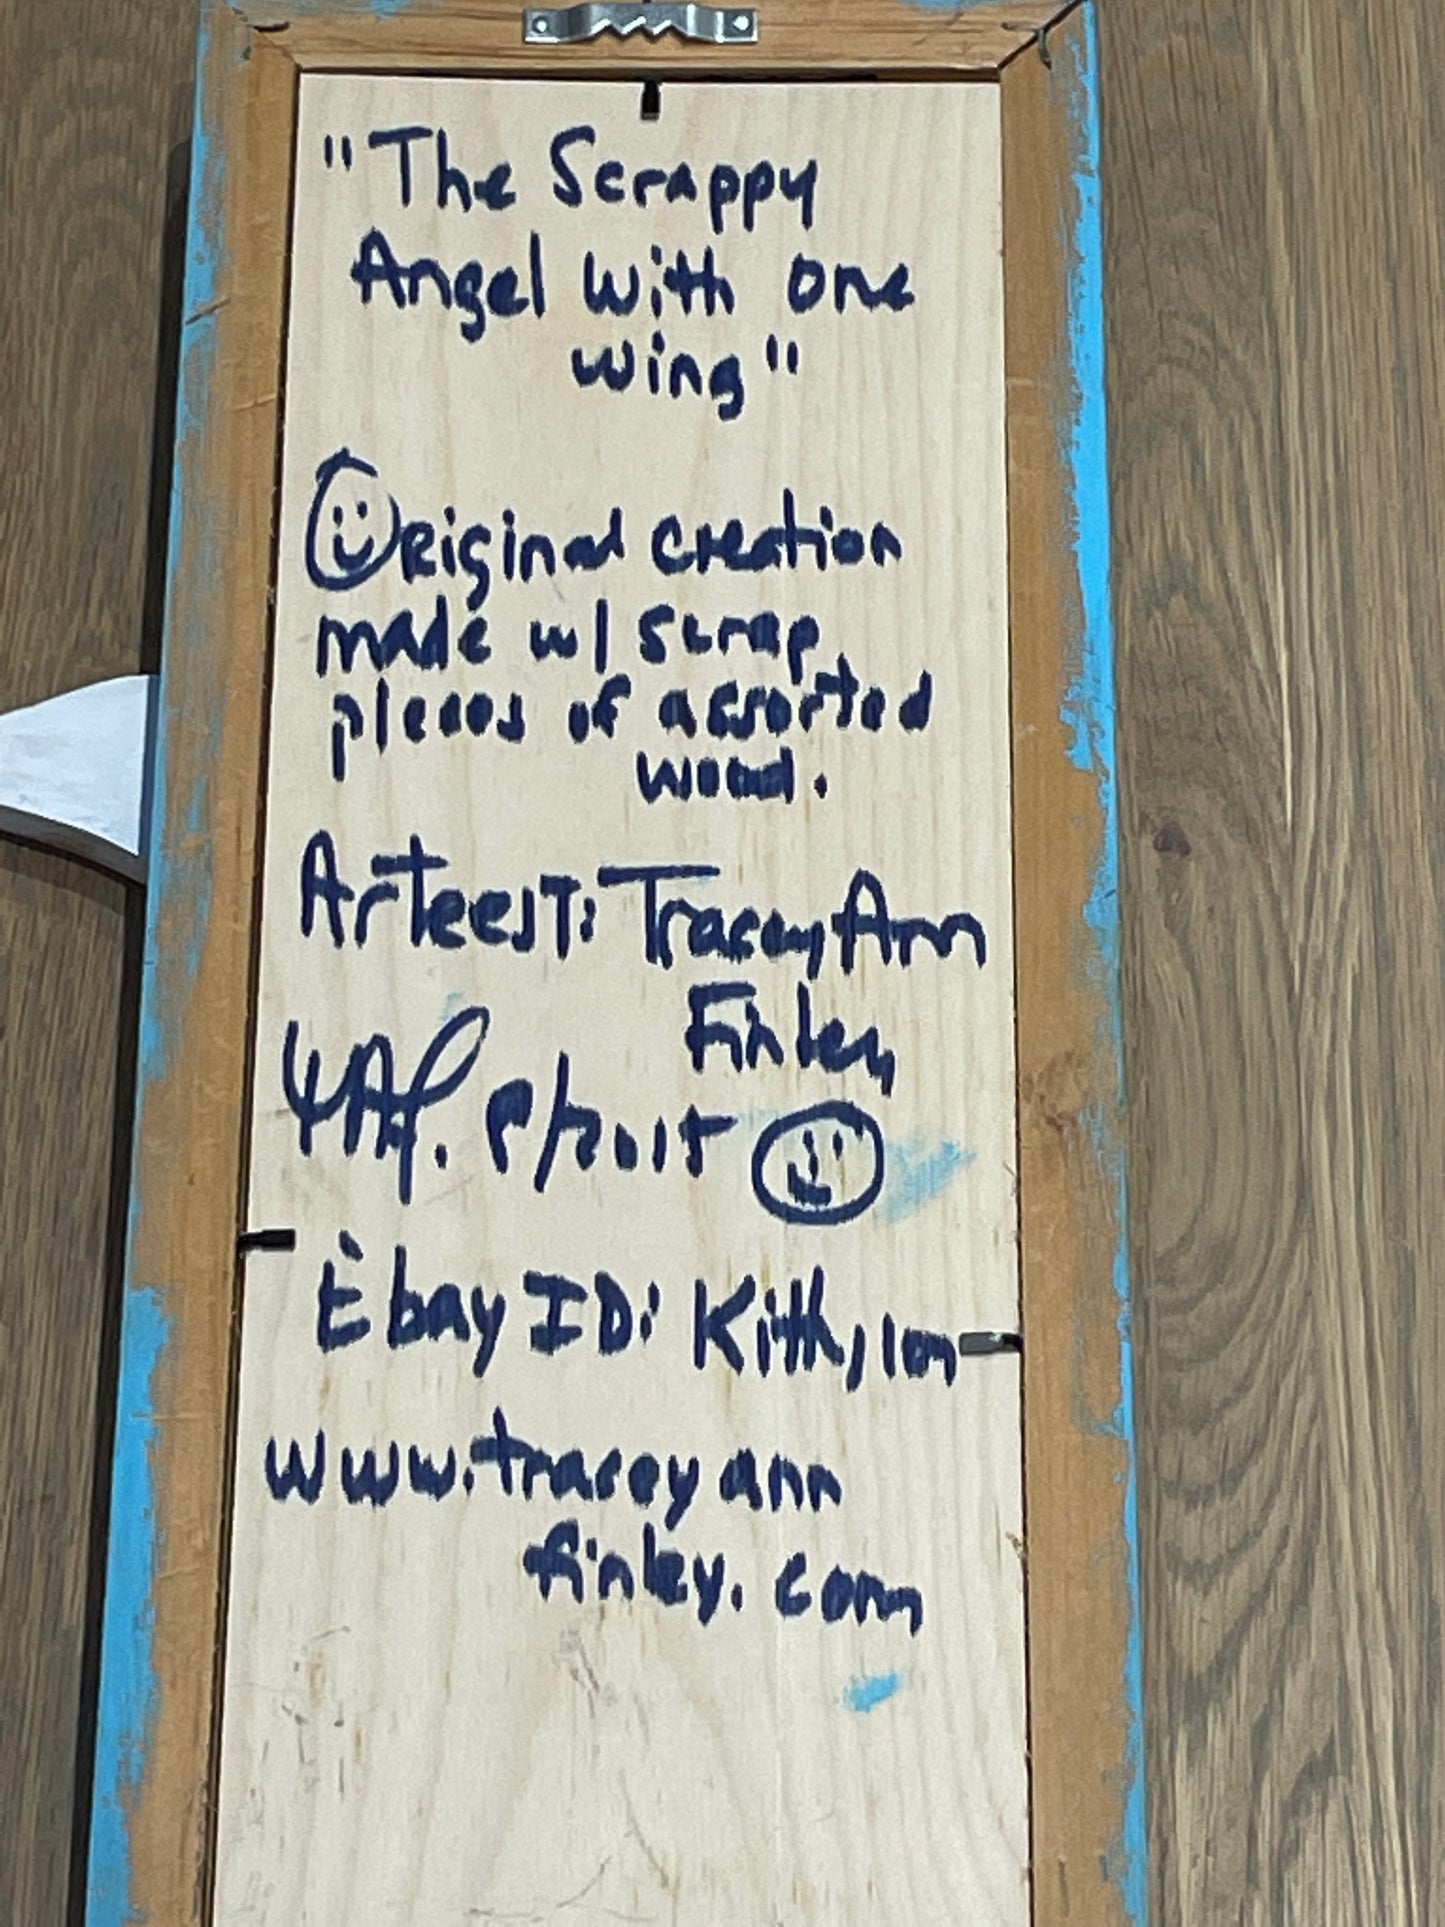 "The Scrappy
Angel with one
wing"
Original creation
made w/ scrap
pieces of assorted
wood.
ArTeesT: Tracey Ann
Finley
TAF. 8/2015
Ebay ID:
www.traceyann
finley.com